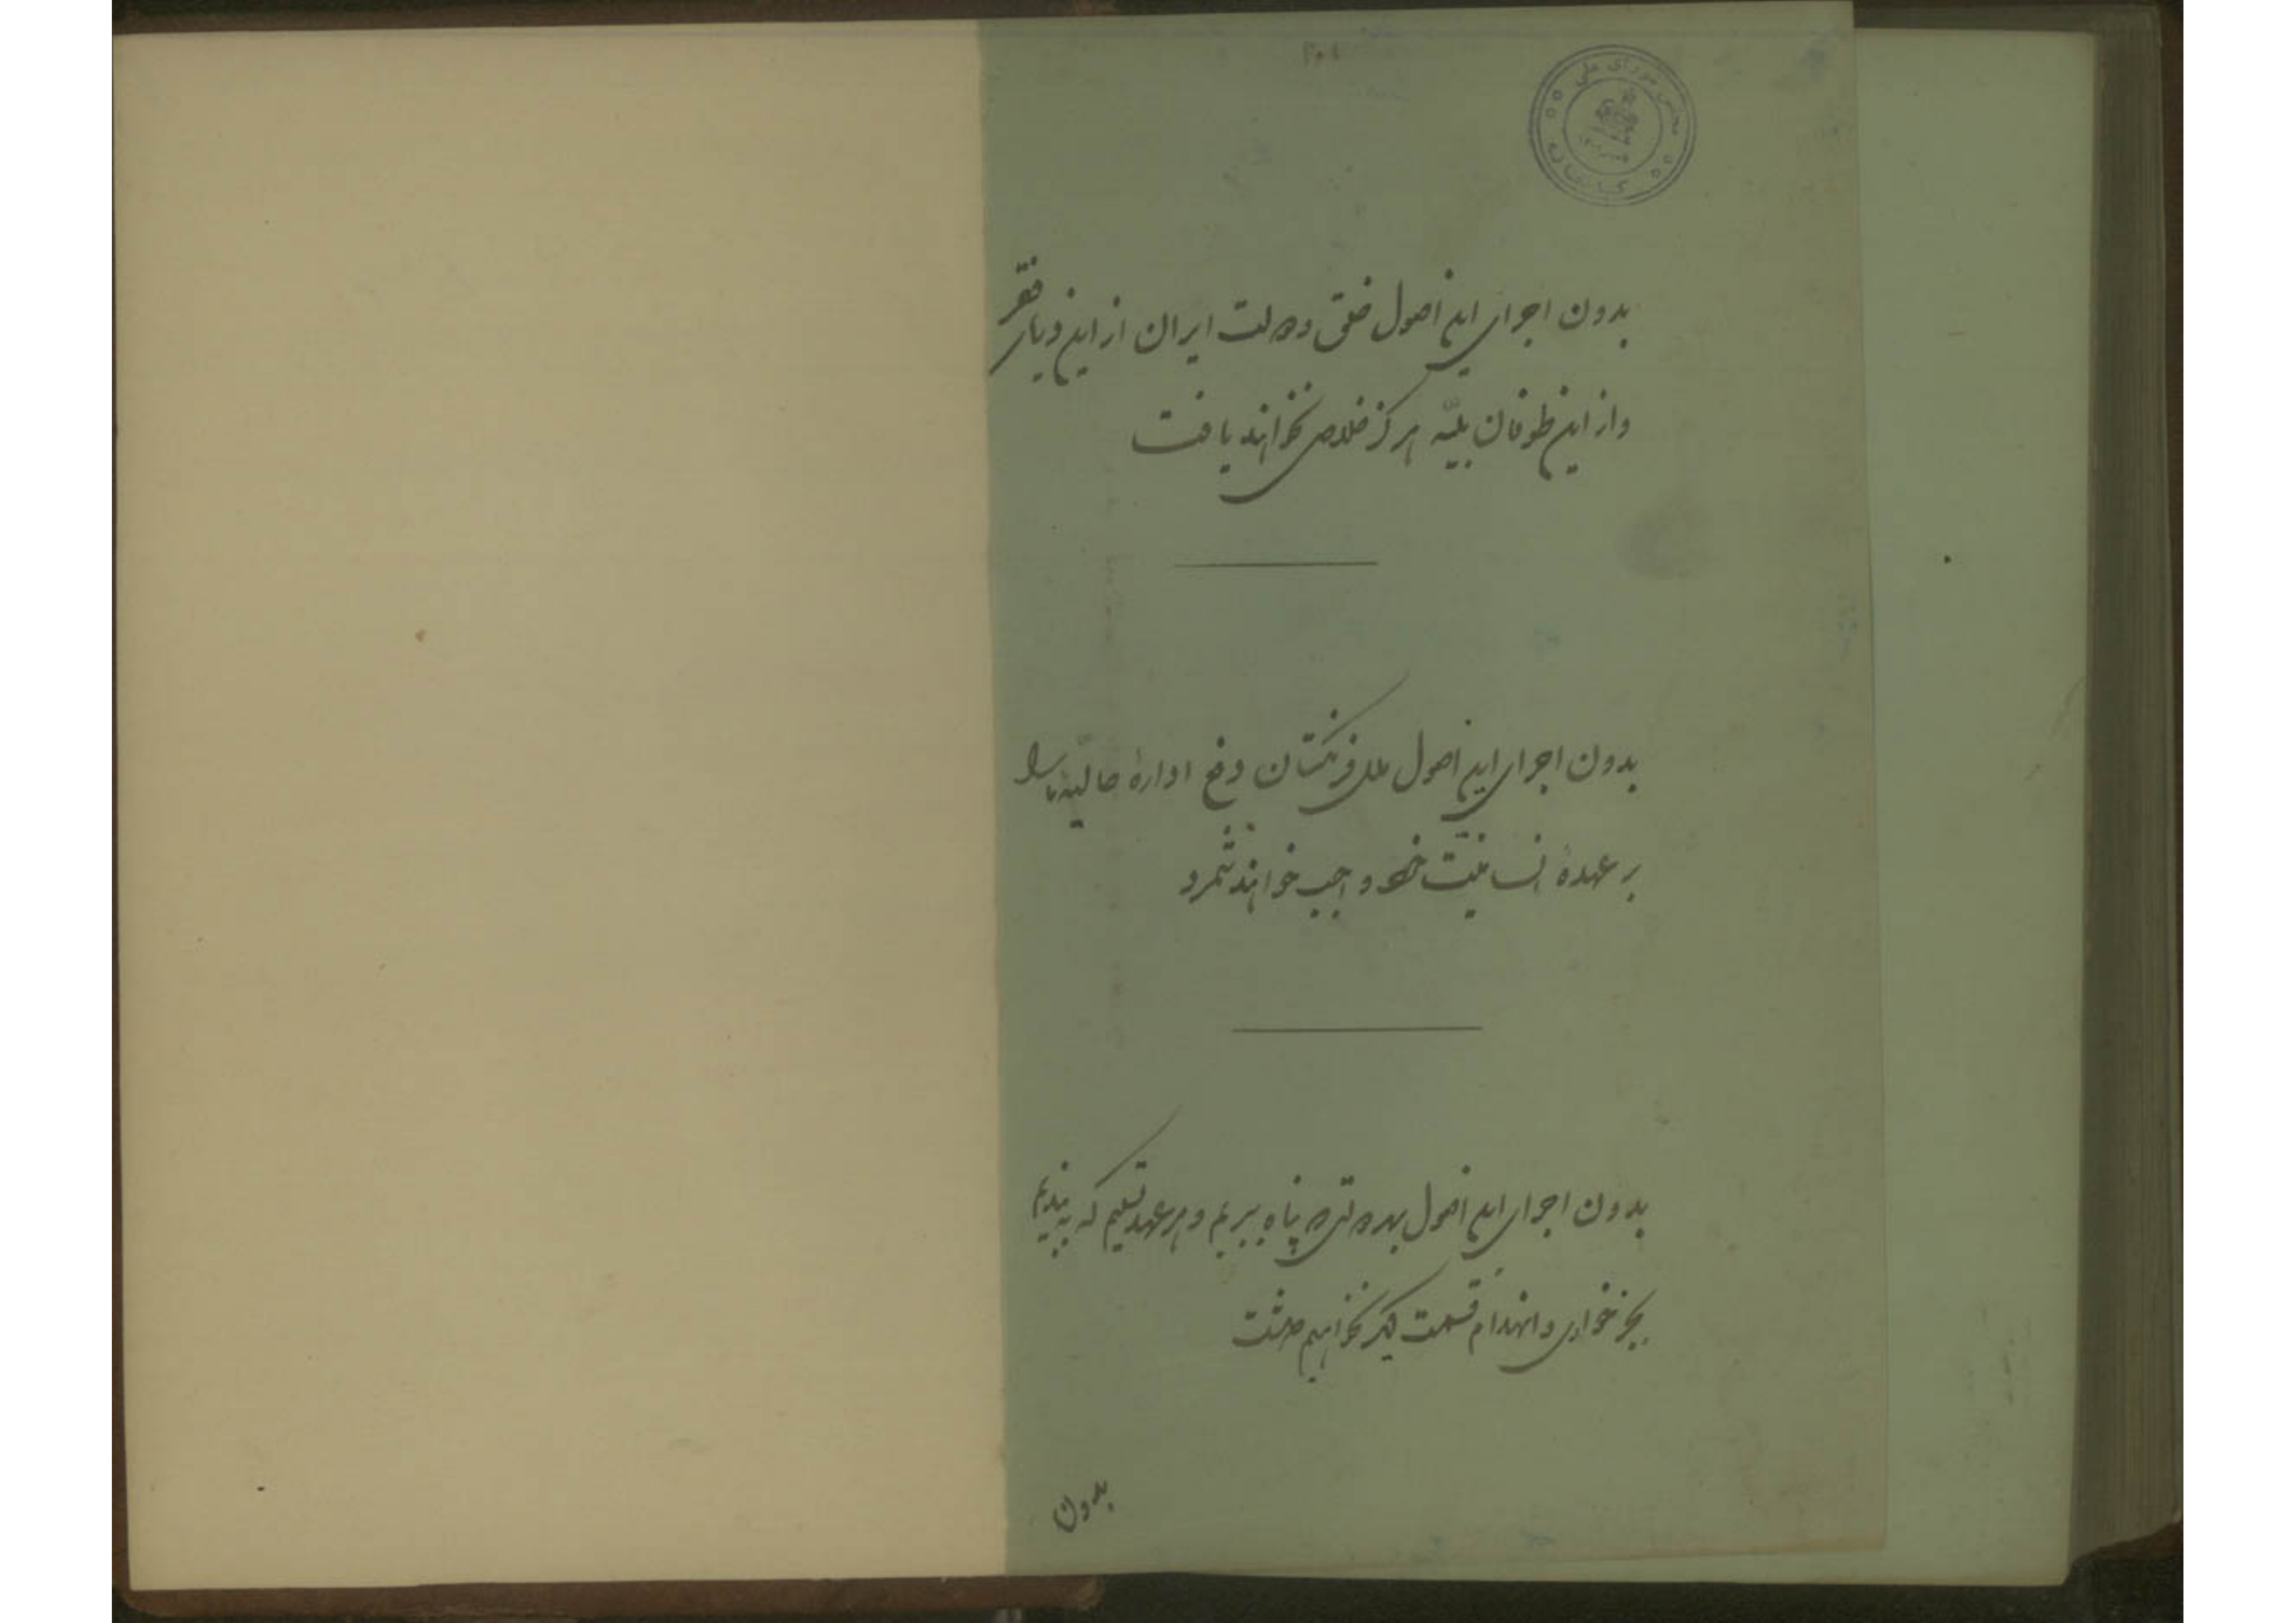 ۲۰۱
مجلس شورای ملی
کتابخانه
بدون اجرای این اصول خلق و دولت ایران از این دریای فقر
و از این طوفان بلیّه هرگز خلاصی نخواهند یافت
بدون اجرای این اصول ملل فرنگستان دفع ادارهٔ حالیّهٔ ما را
بر عهدهٔ انسانیّت خود واجب خواهند شمرد
بدون اجرای این اصول بهر دولتی که پناه ببریم و هر عهد تسلیم که به بندیم
بجز خواری و انهدام قسمت دیگر نخواهیم داشت
بدون